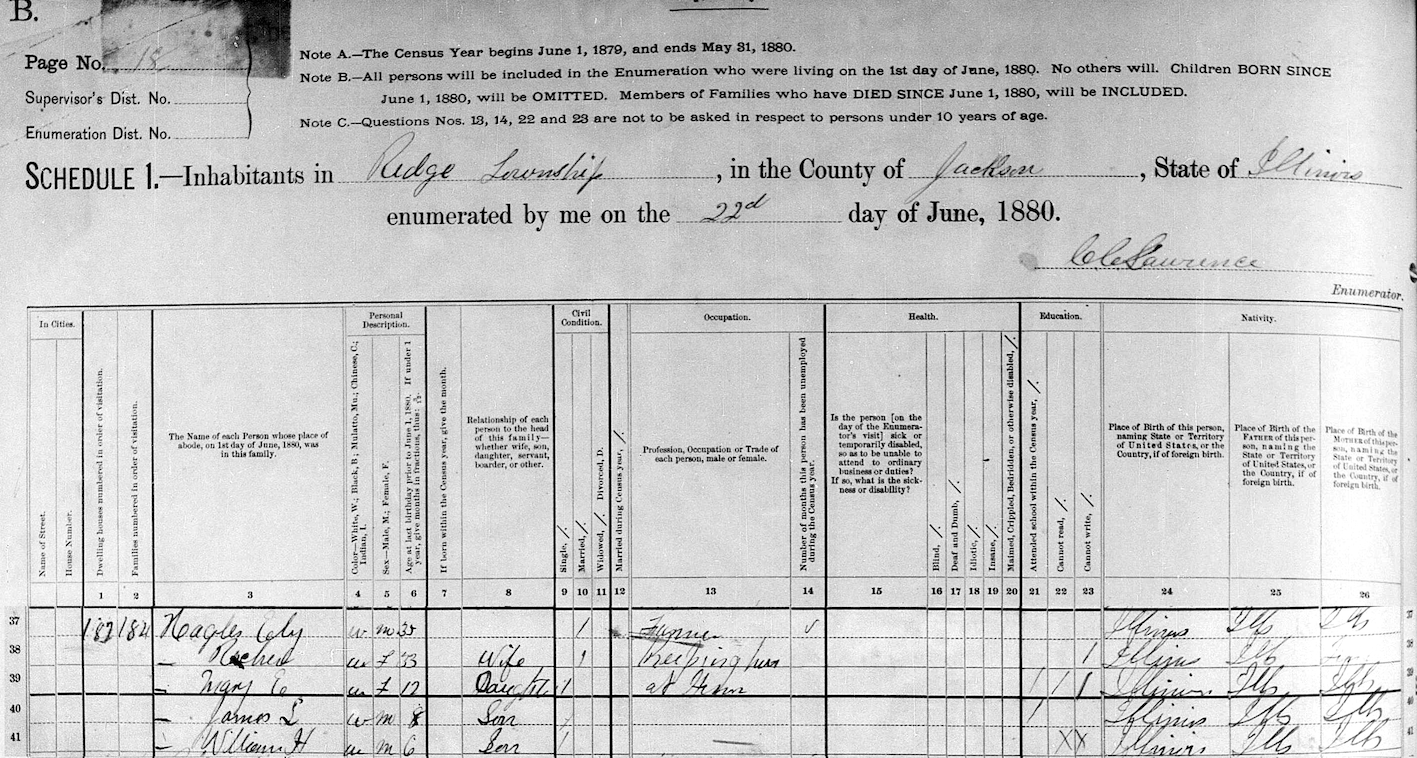 B.
Page No. 18
Supervisor's Dist. No.
Enumeration Dist. No.
Note A.—The Census Year begins June 1, 1879, and ends May 31, 1880.
Note B.—All persons will be included in the Enumeration who were living on the 1st day of June, 1880. No others will. Children BORN SINCE
June 1, 1880, will be OMITTED. Members of Families who have DIED SINCE June 1, 1880, will be INCLUDED.
Note C.—Questions Nos. 13, 14, 22 and 23 are not to be asked in respect to persons under 10 years of age.
SCHEDULE 1.—Inhabitants in Ridge Township, in the County of Jackson, State of Illinois
enumerated by me on the 22d day of June, 1880.
Lawrence
Enumerator.
In Cities.
Name of Street.
House Number.
Dwelling houses numbered in order of visitation.
Families numbered in order of visitation.
The Name of each Person whose place of
abode, on 1st day of June, 1880, was
in this family.
Personal
Description.
Color—White, W.; Black, B.; Mulatto, Mu.; Chinese, C.;
Indian, I.
Sex—Male, M.; Female, F.
Age at last birthday prior to June 1, 1880. If under 1
year, give months in fractions, thus: 3/12
If born within the Census year, give the month.
Relationship of each
person to the head
of this family—
whether wife, son,
daughter, servant,
boarder, or other.
Civil
Condition.
Single, /.
Married, /.
Widowed, /. Divorced, D.
Married during Census year, /.
Occupation.
Profession, Occupation or Trade of
each person, male or female.
Number of months this person has been unemployed
during the Census year.
Health.
Is the person [on the
day of the Enumera-
tor's visit] sick or
temporarily disabled,
so as to be unable to
attend to ordinary
business or duties?
If so, what is the sick-
ness or disability?
Blind, /.
Deaf and Dumb, /.
Idiotic, /.
Insane, /.
Maimed, Crippled, Bedridden, or otherwise disabled, /.
Education.
Attended school within the Census year, /.
Cannot read, /.
Cannot write, /.
Nativity.
Place of Birth of this person,
naming State or Territory
of United States, or the
Country, if of foreign birth.
Place of Birth of the
FATHER of this per-
son, naming the
State or Territory
of United States, or
the Country, if of
foreign birth.
Place of Birth of the
MOTHER of this per-
son, naming the
State or Territory
of United States, or
the Country, if of
foreign birth.
1 2 3 4 5 6 7 8 9 10 11 12 13 14 15 16 17 18 19 20 21 22 23 24 25 26
37 182 184 Nagles Ely w m 35 / Farmer Illinois Ills Ills 37
38 — Rachel w F 33 Wife / Keeping hus / Illinois Ills 38
39 — Mary E w F 12 Daught / at Hom / / / Illinois Ills Ills 39
40 — James L w m 8 Son / / Illinois Ills Ills 40
41 — William H w m 6 Son / X X Illinois Ills Ills 41